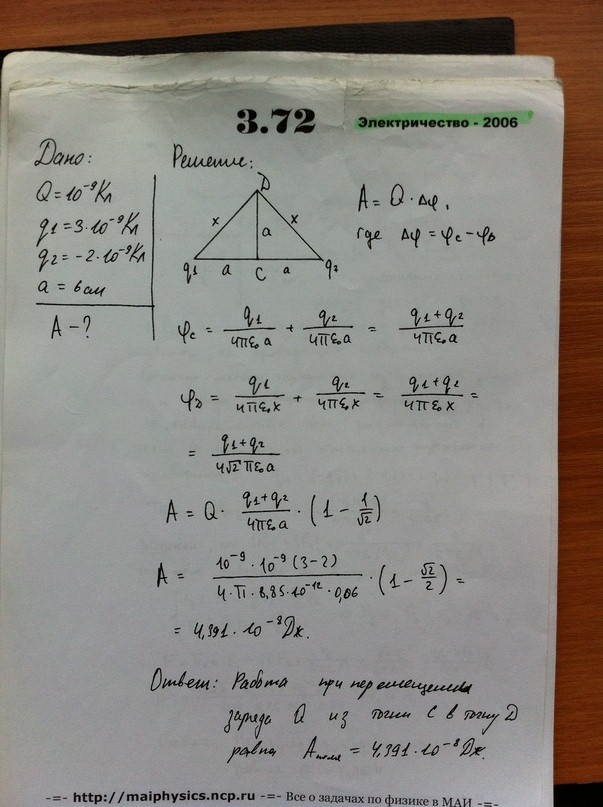 3.72
Электричество - 2006
Дано:
Q = 10⁻⁹ Кл
q1 = 3·10⁻⁹ Кл
q2 = -2·10⁻⁹ Кл
a = 6 см
A - ?
Решение:
D
x x
a
q1 a C a q2
A = Q · Δφ,
где Δφ = φc - φD
φc = q1/4πε₀a + q2/4πε₀a = q1+q2/4πε₀a
φD = q1/4πε₀x + q2/4πε₀x = q1+q2/4πε₀x =
= q1+q2/4√2πε₀a
A = Q · q1+q2/4πε₀a · (1 - 1/√2)
A = 10⁻⁹ · 10⁻⁹ (3-2)/4·π·8,85·10⁻¹²·0,06 · (1 - √2/2) =
= 4,391 · 10⁻⁸ Дж.
Ответ: Работа при перемещении
заряда Q из точки C в точку D
равна Aполя = 4,391·10⁻⁸ Дж.
-=- http://maiphysics.ncp.ru -=- Все о задачах по физике в МАИ -=-